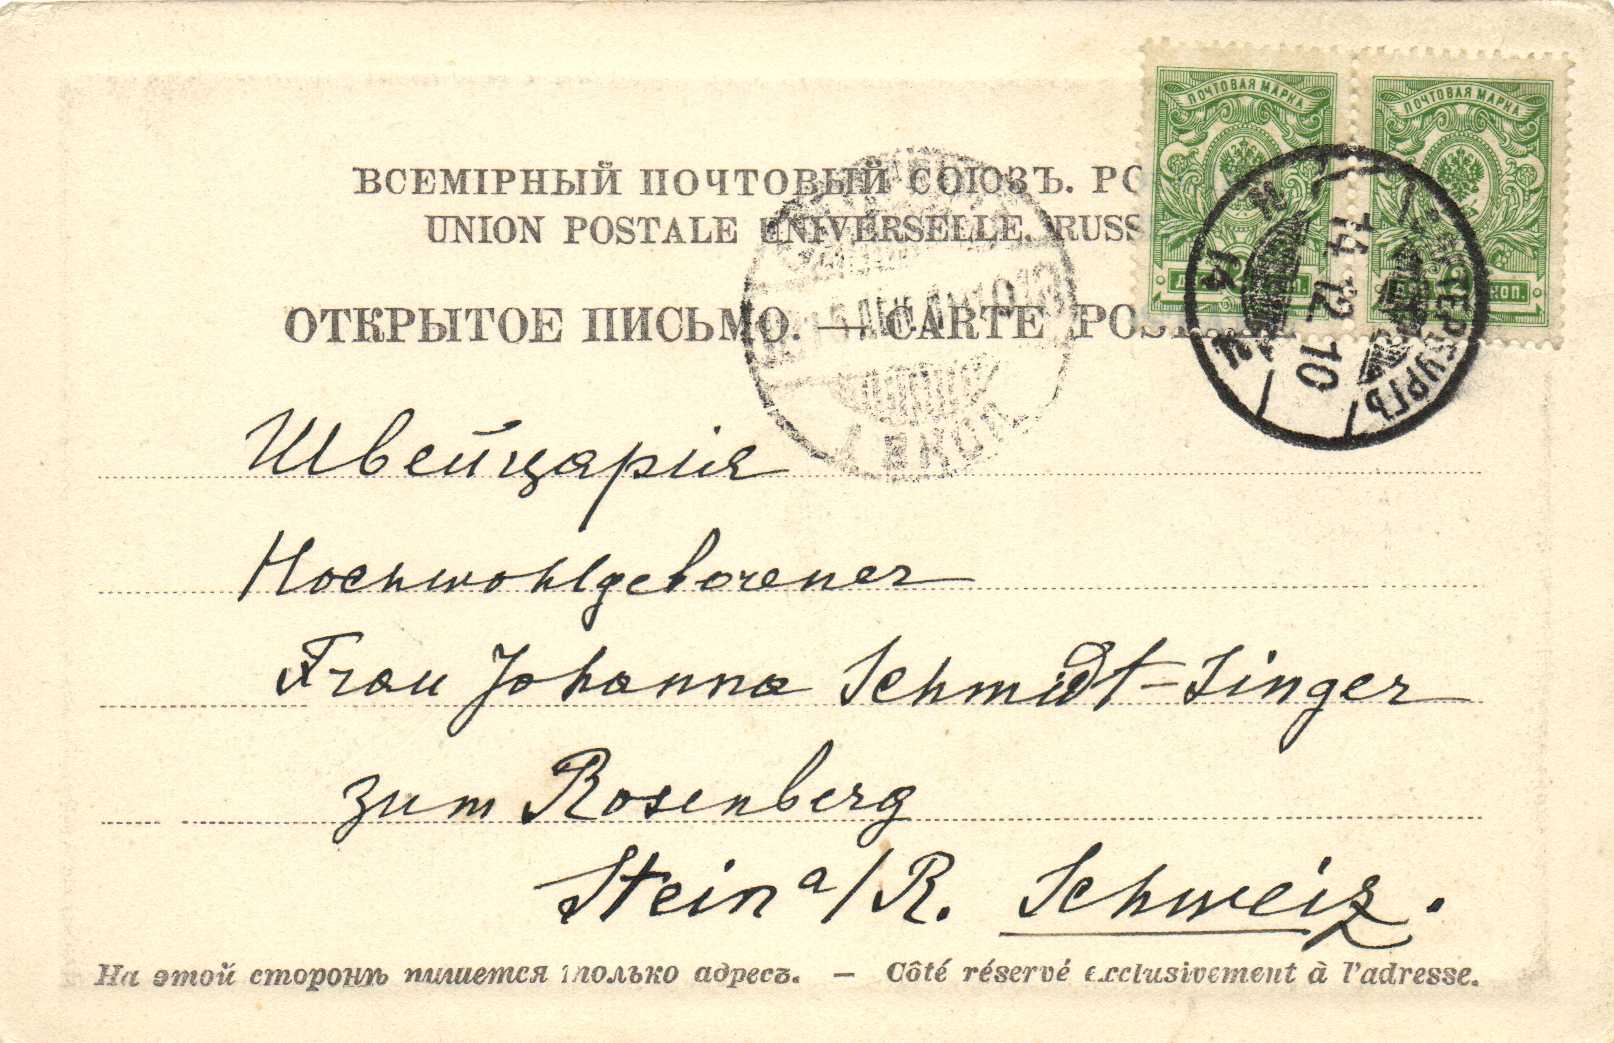 ПОЧТОВАЯ МАРКА ПОЧТОВАЯ МАРКА
ВСЕМІРНЫЙ ПОЧТОВЫЙ СОЮЗЪ. РО
UNION POSTALE UNIVERSELLE. RUSS
КОП.
14 12 10
ОТКРЫТОЕ ПИСЬМО. — CARTE POSTALE
Швейцарія
Hochwohlgeborener
Frau Johanna Schmidt-Singer
zum Rosenberg
Stein a/R. Schweiz.
На этой сторонѣ пишется только адресъ. — Côté réservé exclusivement à l'adresse.